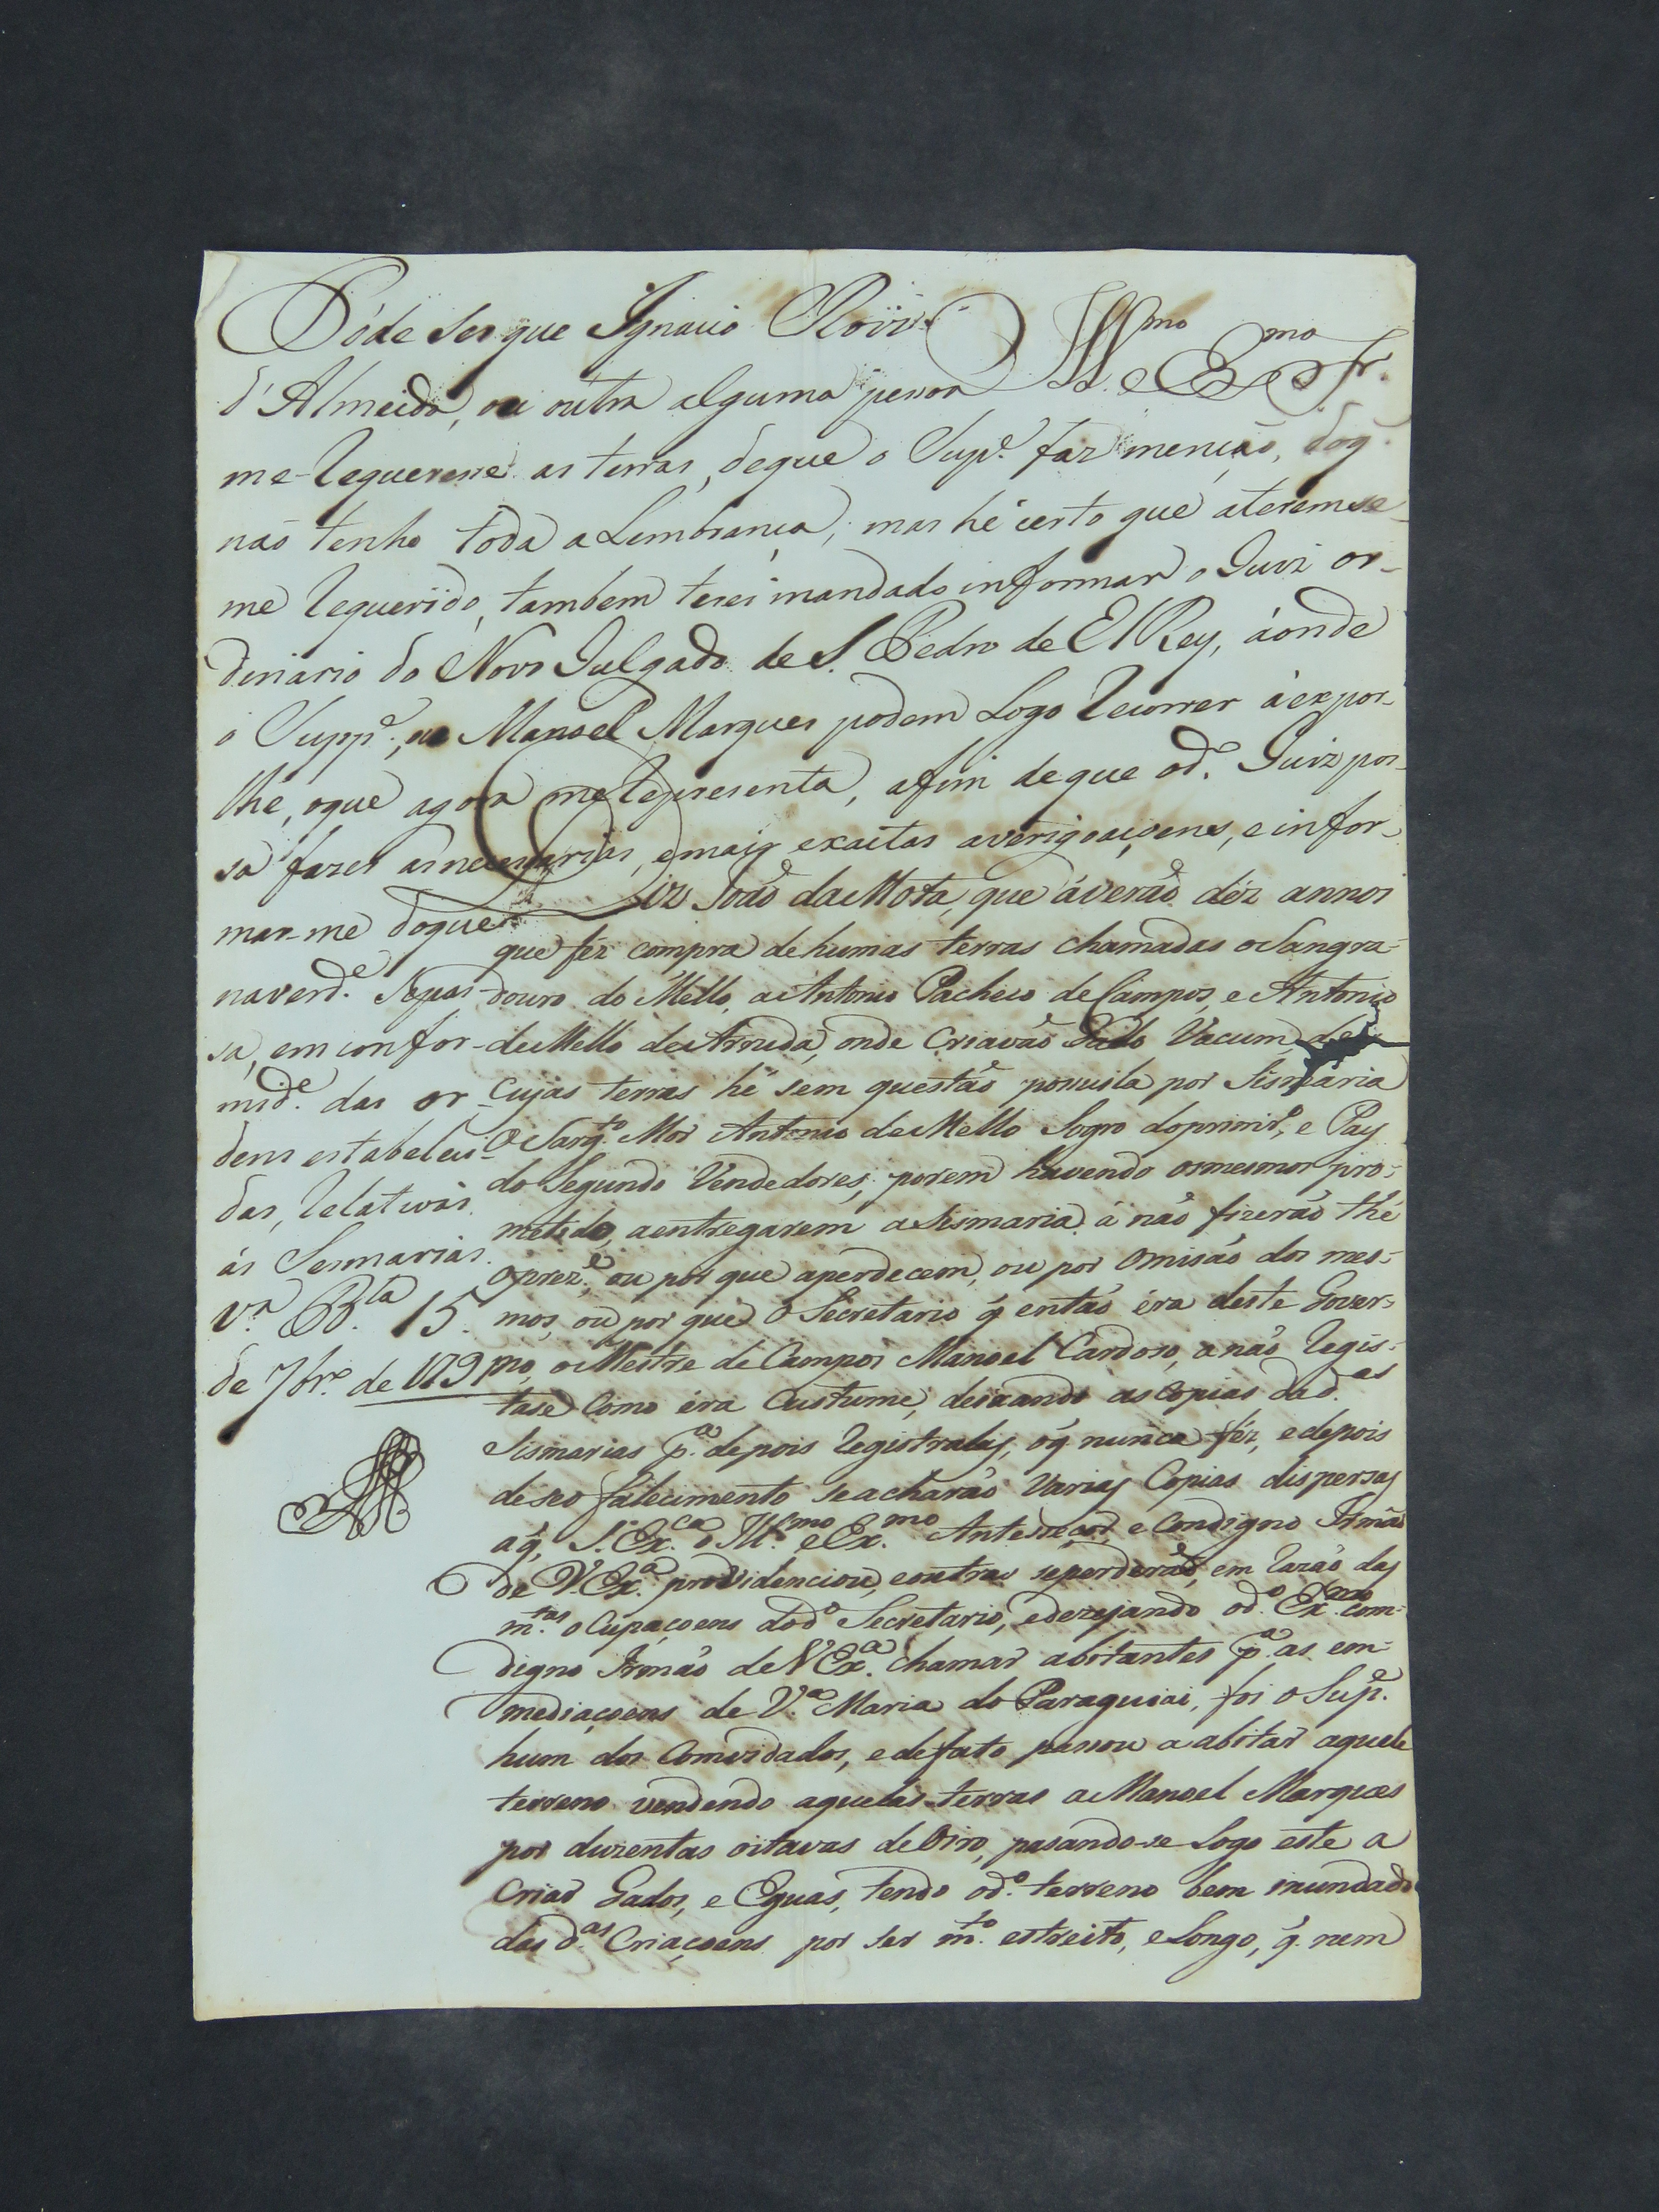 Póde ser que Ignacio Roiz
d'Almeida, ou outra alguma pessoa
me-requeresse as terras, de que o Supe. faz menção, doq.
não tenho toda a Lembrança; mas hé certo que aterem se-
me requerido, tambem terei mandado informar o Juiz or-
dinario do Novo Julgado de S. Pedro de El Rey, áonde
o Suppe., ou Manoel Marques podem Logo recorrer á expor-
lhe, oque agora me representa, afim de que od.e Juiz pos-
sa fazer as necessarias, emais exactas averigoaçoens, e infor-
mar-me doque
na verde. Sepas-
sa, em confor-
mide. das or-
dens estabeleci-
das, relativas
ás Sesmarias.
Va. Bla. 15.
de 7bro. de 179
Illmo. e Exmo. Sr.
Diz João da Mota, que áverão déz annos
que féz compra de humas terras chamadas o Sangra-
douro do Mello, a Antonio Pacheco de Campos, e Antonio
de Mello de Arruda, onde Criavão Gado Vacum, de
Cujas terras hé sem questão possuila por Sismaria
o Sargto. Mor Antonio de Mello Sogro do primro., e Pay
do Segundo Vendedores, porem havendo os mesmos pro-
metido, aentregarem a Sismaria a não fizerão thé
opreze., ou por que aperdecem, ou por Omisão dos mes-
mos, ou por que o Secretario q. então éra deste Gover-
no, o Mestre de Campos Manoel Cardoso, a não regis-
tase Como éra Custume, deixando as Copias dad.as
Sismarias pa. depois registralas, oq. nunca féz, e depois
de seo falecimento se acharão varias Copias dispersas
aq. S. Exca. o Illmo. e Exmo. Antecesor, e Condigno Irmão
de V. Exa. providenciou, e outras se perderão, em razão das
mtas. oCupaçoens dodo. Secretario, e dezejando odo. Exmo. Com-
digno Irmão de V Exa. chamar abitantes pa. as em-
mediaçoens de Va. Maria do Paraguiai, foi o Supe.
hum dos Comvidados, e defato passou a abitar aquele
terreno vendendo aquelas terras a Manoel Marques
por duzentas oitavas de Oiro, pasando-se Logo este a
Criar Gados, e Eguas, tendo odo. terreno bem inundado
das d.as Criaçoens por ser mto. estreito, e Longo, q. nem